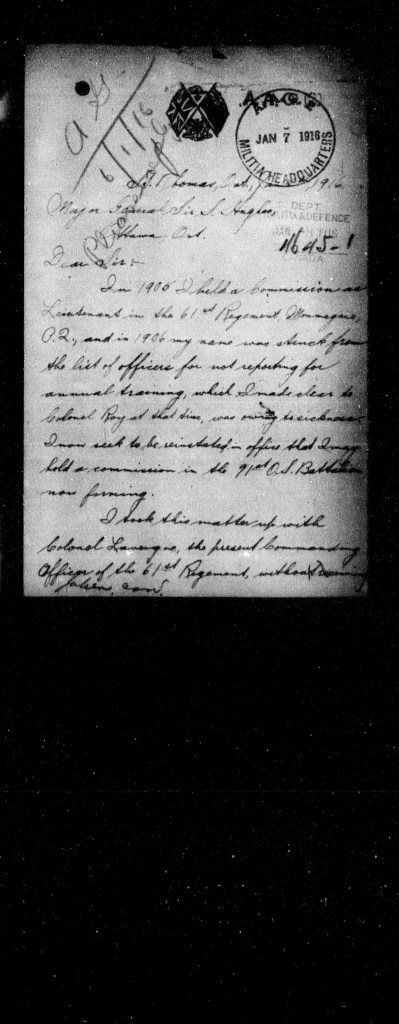 A G
6/1/16
A.A.G. (2)
JAN 7 1916
MILITIA HEADQUARTERS
St. Thomas, Ont., 1916
Major General Sir S. Hughes
Ottawa Ont.
DEPT.
MILITIA & DEFENCE
CANADA
4645-1
Dear Sir:-
In 1905 I held a Commission as
Lieutenant in the 61st Regiment Montmagny,
P.Q., and in 1906 my name was struck from
the list of officers for not reporting for
annual training, which I made clear to
Colonel Roy at that time, was owing to sickness.
I now seek to be reinstated in office that I may
hold a commission in the 91st O.S. Battalion
now forming.
I took this matter up with
Colonel Lavergne, the present Commanding
Officer of the 61st Regiment, without